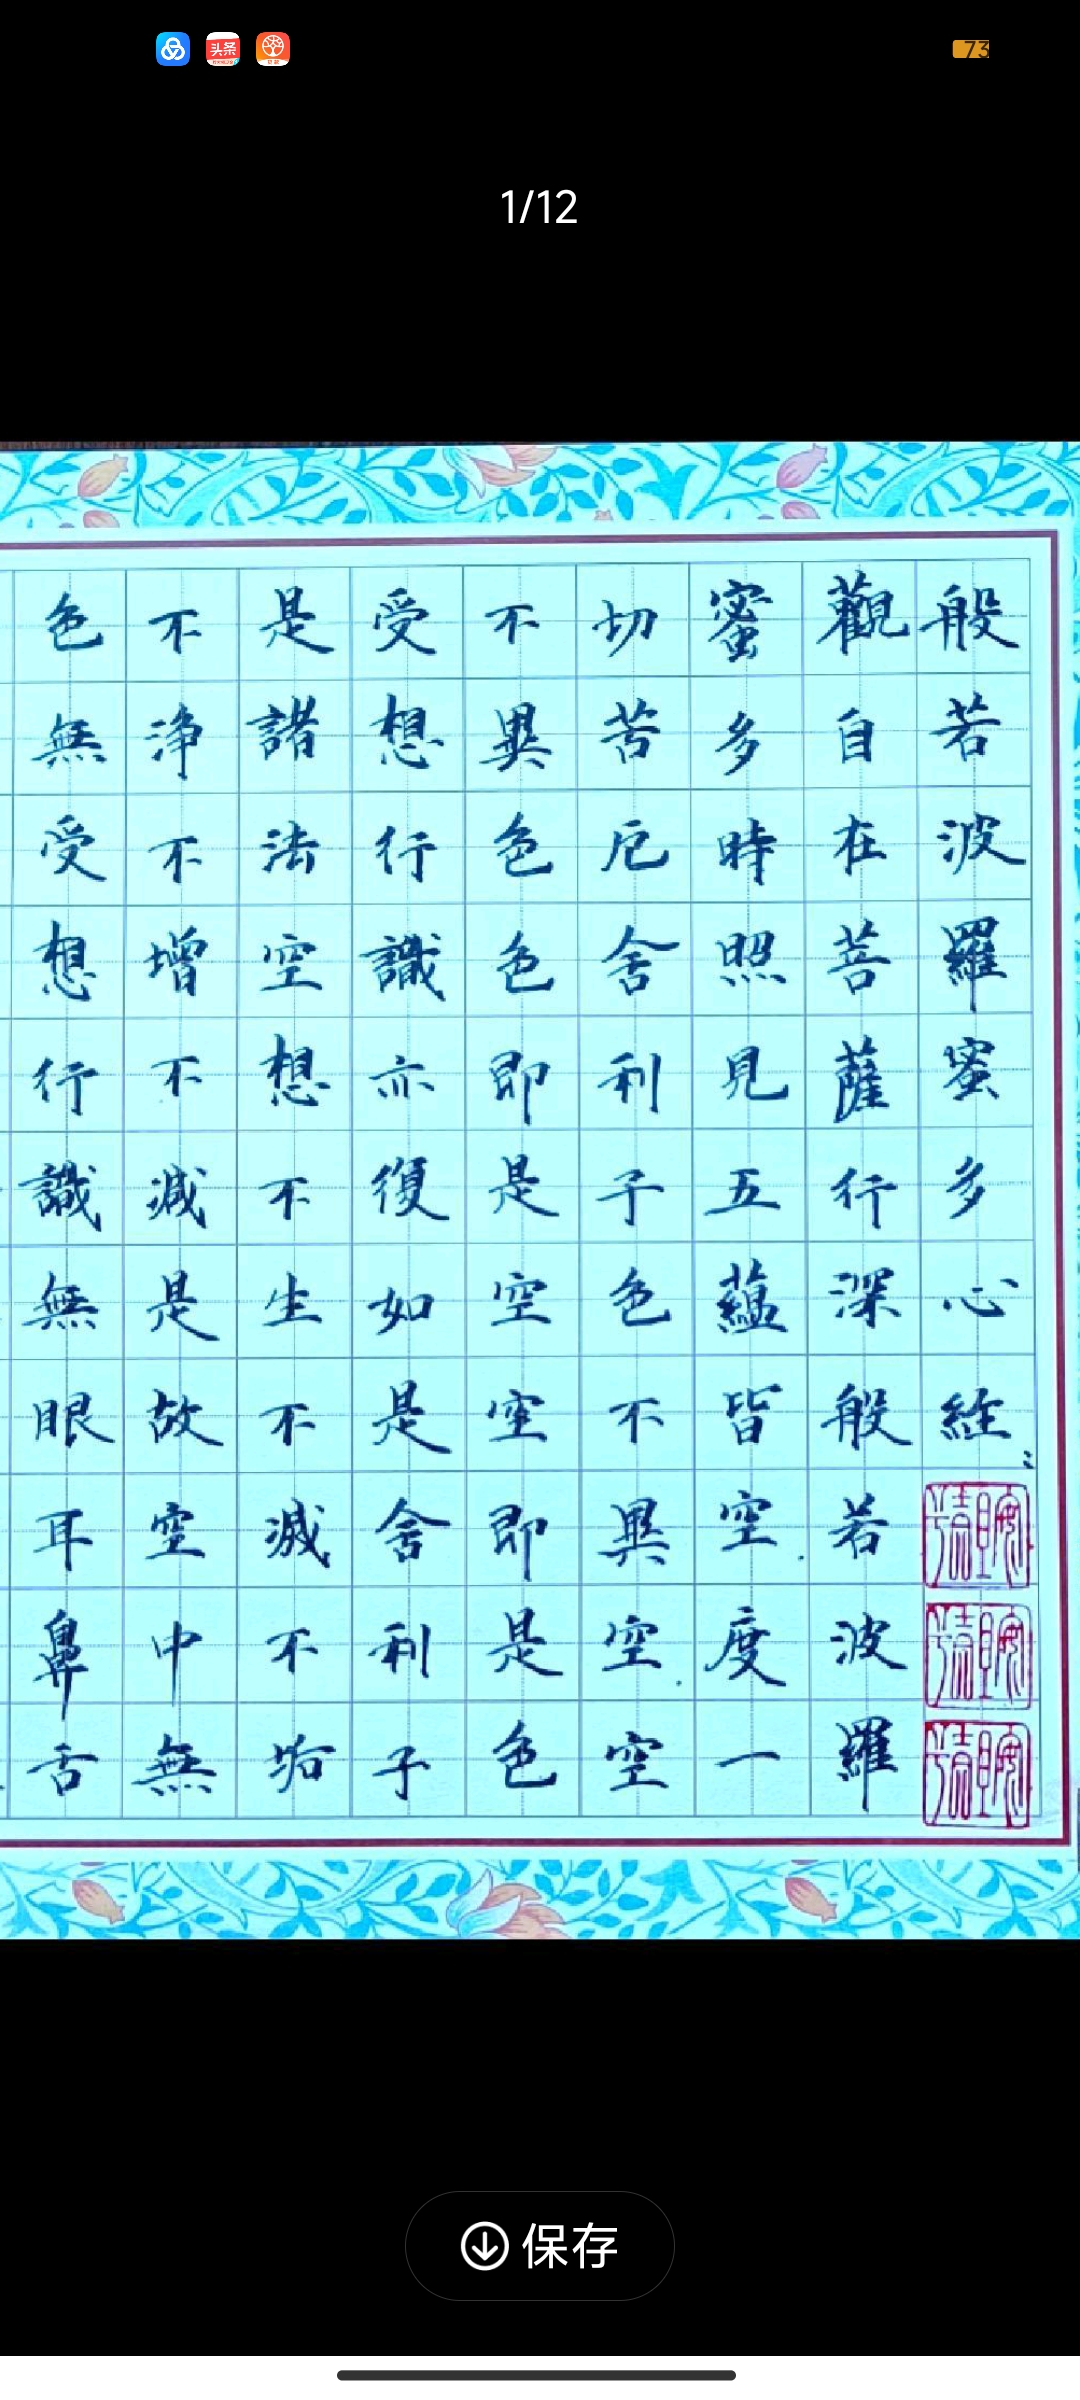 头条
73
1/12
般若波羅蜜多心経
觀自在菩薩行深般若波羅
蜜多時照見五蘊皆空度一
切苦厄舍利子色不異空空
不異色色即是空空即是色
受想行識亦復如是舍利子
是諸法空想不生不滅不垢
不淨不增不減是故空中無
色無受想行識無眼耳鼻舌
保存